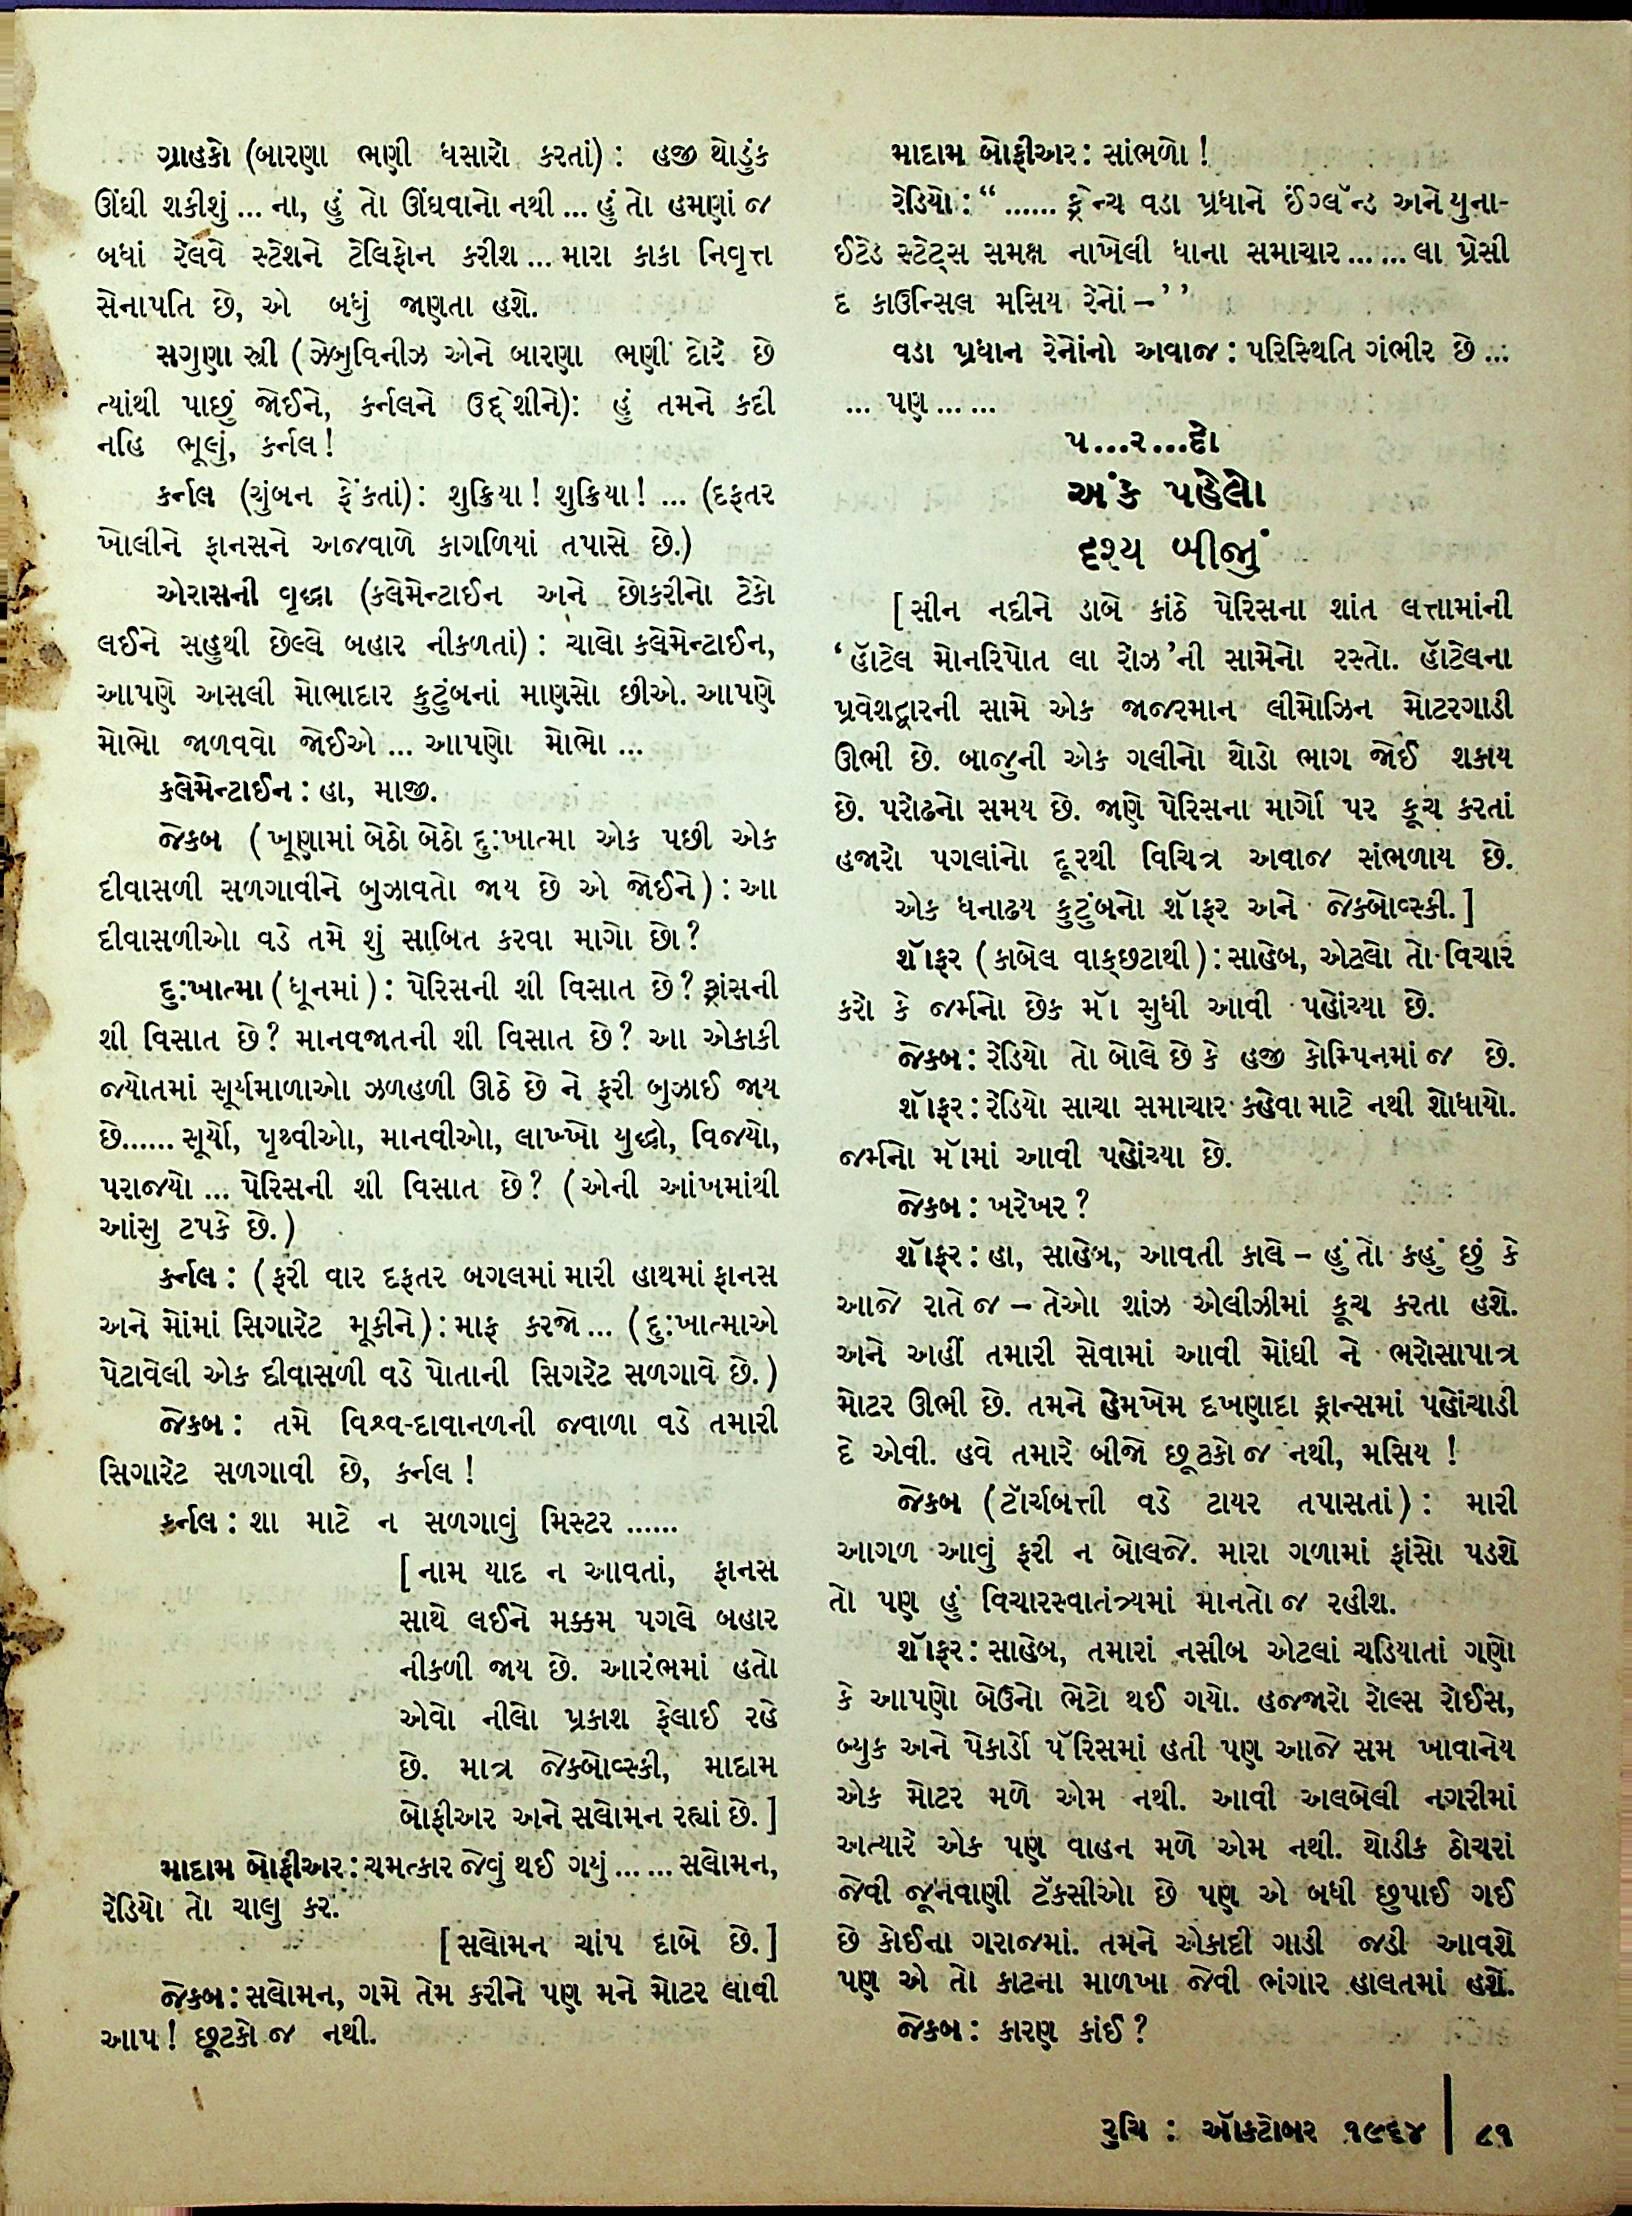 ગ્રાહકો (બારણા ભણી ધસારો કરતાં): હજી થોડુંક
ઊંઘી શકીશું ... ના, હું તો ઊંઘવાનો નથી ... હું તો હમણાં જ
બધાં રેલવે સ્ટેશને ટેલિફોન કરીશ ... મારા કાકા નિવૃત્ત
સેનાપતિ છે, એ બધું જાણતા હશે.
સગુણા સ્ત્રી (ઝેબુવિનીઝ એને બારણા ભણી દોરે છે
ત્યાંથી પાછું જોઈને, કર્નલને ઉદ્દેશીને): હું તમને કદી
નહિ ભૂલું, કર્નલ!
કર્નલ (ચુંબન ફેંકતાં): શુક્રિયા! શુક્રિયા! ... (દફતર
ખોલીને ફાનસને અજવાળે કાગળિયાં તપાસે છે.)
એરાસની વૃદ્ધા (કલેમેન્ટાઈન અને છોકરીનો ટેકો
લઈને સહુથી છેલ્લે બહાર નીકળતાં): ચાલો કલેમેન્ટાઈન,
આપણે અસલી મોભાદાર કુટુંબનાં માણસો છીએ. આપણે
મોભો જાળવવો જોઈએ ... આપણો મોભો ...
કલેમેન્ટાઈન: હા, માજી.
જેકબ (ખૂણામાં બેઠો બેઠો દુઃખાત્મા એક પછી એક
દીવાસળી સળગાવીને બુઝાવતો જાય છે એ જોઈને): આ
દીવાસળીઓ વડે તમે શું સાબિત કરવા માગો છો?
દુઃખાત્મા (ધૂનમાં): પેરિસની શી વિસાત છે? ફ્રાંસની
શી વિસાત છે? માનવજાતની શી વિસાત છે? આ એકાકી
જ્યોતમાં સૂર્યમાળાઓ ઝળહળી ઊઠે છે ને ફરી બુઝાઈ જાય
છે...... સૂર્યો, પૃથ્વીઓ, માનવીઓ, લાખ્ખો યુદ્ધો, વિજયો,
પરાજયો ... પેરિસની શી વિસાત છે? (એની આંખમાંથી
આંસુ ટપકે છે.)
કર્નલ: (ફરી વાર દફતર બગલમાં મારી હાથમાં ફાનસ
અને મોંમાં સિગારેટ મૂકીને): માફ કરજો... (દુઃખાત્માએ
પેટાવેલી એક દીવાસળી વડે પોતાની સિગરેટ સળગાવે છે.)
જેકબ: તમે વિશ્વ-દાવાનળની જવાળા વડે તમારી
સિગારેટ સળગાવી છે, કર્નલ!
કર્નલ: શા માટે ન સળગાવું મિસ્ટર ......
[નામ યાદ ન આવતાં, ફાનસ
સાથે લઈને મક્કમ પગલે બહાર
નીકળી જાય છે. આરંભમાં હતો
એવો નીલો પ્રકાશ ફેલાઈ રહે
છે. માત્ર જેકબોવ્સ્કી, માદામ
બોફીઅર અને સલોમન રહ્યાં છે.]
માદામ બોફીઅર: ચમત્કાર જેવું થઈ ગયું ... ... સલોમન,
રેડિયો તો ચાલુ કર.
[સલોમન ચાંપ દાબે છે.]
જેકબ: સલોમન, ગમે તેમ કરીને પણ મને મોટર લાવી
આપ! છૂટકો જ નથી.
માદામ બોફીઅર: સાંભળો!
રેડિયો: “...... ફ્રેન્ચ વડા પ્રધાને ઈંગ્લૅન્ડ અને યુના-
ઈટેડ સ્ટેટ્સ સમક્ષ નાખેલી ધાના સમાચાર ... ... લા પ્રેસી
દ કાઉન્સિલ મસિય રેનોં –’’
વડા પ્રધાન રેનોંનો અવાજ: પરિસ્થિતિ ગંભીર છે ...
... પણ ... ...
પ...ર...દો
અંક પહેલો
દૃશ્ય બીજું
[સીન નદીને ડાબે કાંઠે પેરિસના શાંત લત્તામાંની
‘હૉટેલ મોનરિપોત લા રોઝ’ની સામેનો રસ્તો. હૉટેલના
પ્રવેશદ્વારની સામે એક જાજરમાન લીમોઝિન મોટરગાડી
ઊભી છે. બાજુની એક ગલીનો થોડો ભાગ જોઈ શકાય
છે. પરોઢનો સમય છે. જાણે પેરિસના માર્ગો પર કૂચ કરતાં
હજારો પગલાંનો દૂરથી વિચિત્ર અવાજ સંભળાય છે.
એક ધનાઢય કુટુંબનો શૉફર અને જેકબોવ્સ્કી.]
શૉફર (કાબેલ વાક્છટાથી): સાહેબ, એટલો તો વિચાર
કરો કે જર્મનો છેક મૉ સુધી આવી પહોંચ્યા છે.
જેકબ: રેડિયો તો બોલે છે કે હજી કોમ્પિનમાં જ છે.
શૉફર: રેડિયો સાચા સમાચાર કહેવા માટે નથી શોધાયો.
જર્મનો મૉમાં આવી પહોંચ્યા છે.
જેકબ: ખરેખર?
શૉફર: હા, સાહેબ, આવતી કાલે – હું તો કહું છું કે
આજે રાતે જ – તેઓ શાંઝ એલીઝીમાં કૂચ કરતા હશે.
અને અહીં તમારી સેવામાં આવી મોંઘી ને ભરોસાપાત્ર
મોટર ઊભી છે. તમને હેમખેમ દખણાદા ફ્રાન્સમાં પહોંચાડી
દે એવી. હવે તમારે બીજો છૂટકો જ નથી, મસિય!
જેકબ (ટૉર્ચબત્તી વડે ટાયર તપાસતાં): મારી
આગળ આવું ફરી ન બોલજે. મારા ગળામાં ફાંસો પડશે
તો પણ હું વિચારસ્વાતંત્ર્યમાં માનતો જ રહીશ.
શૉફર: સાહેબ, તમારાં નસીબ એટલાં ચડિયાતાં ગણો
કે આપણો બેઉનો ભેટો થઈ ગયો. હજ્જારો રોલ્સ રોઈસ,
બ્યુક અને પેકાર્ડો પૅરિસમાં હતી પણ આજે સમ ખાવાનેય
એક મોટર મળે એમ નથી. આવી અલબેલી નગરીમાં
અત્યારે એક પણ વાહન મળે એમ નથી. થોડીક ઠોચરાં
જેવી જૂનવાણી ટૅકસીઓ છે પણ એ બધી છુપાઈ ગઈ
છે કોઈના ગરાજમાં. તમને એકાદી ગાડી જડી આવશે
પણ એ તો કાટના માળખા જેવી ભંગાર હાલતમાં હશે.
જેકબ: કારણ કાંઈ?
રુચિ : ઑક્ટોબર ૧૯૬૪ | ૮૧